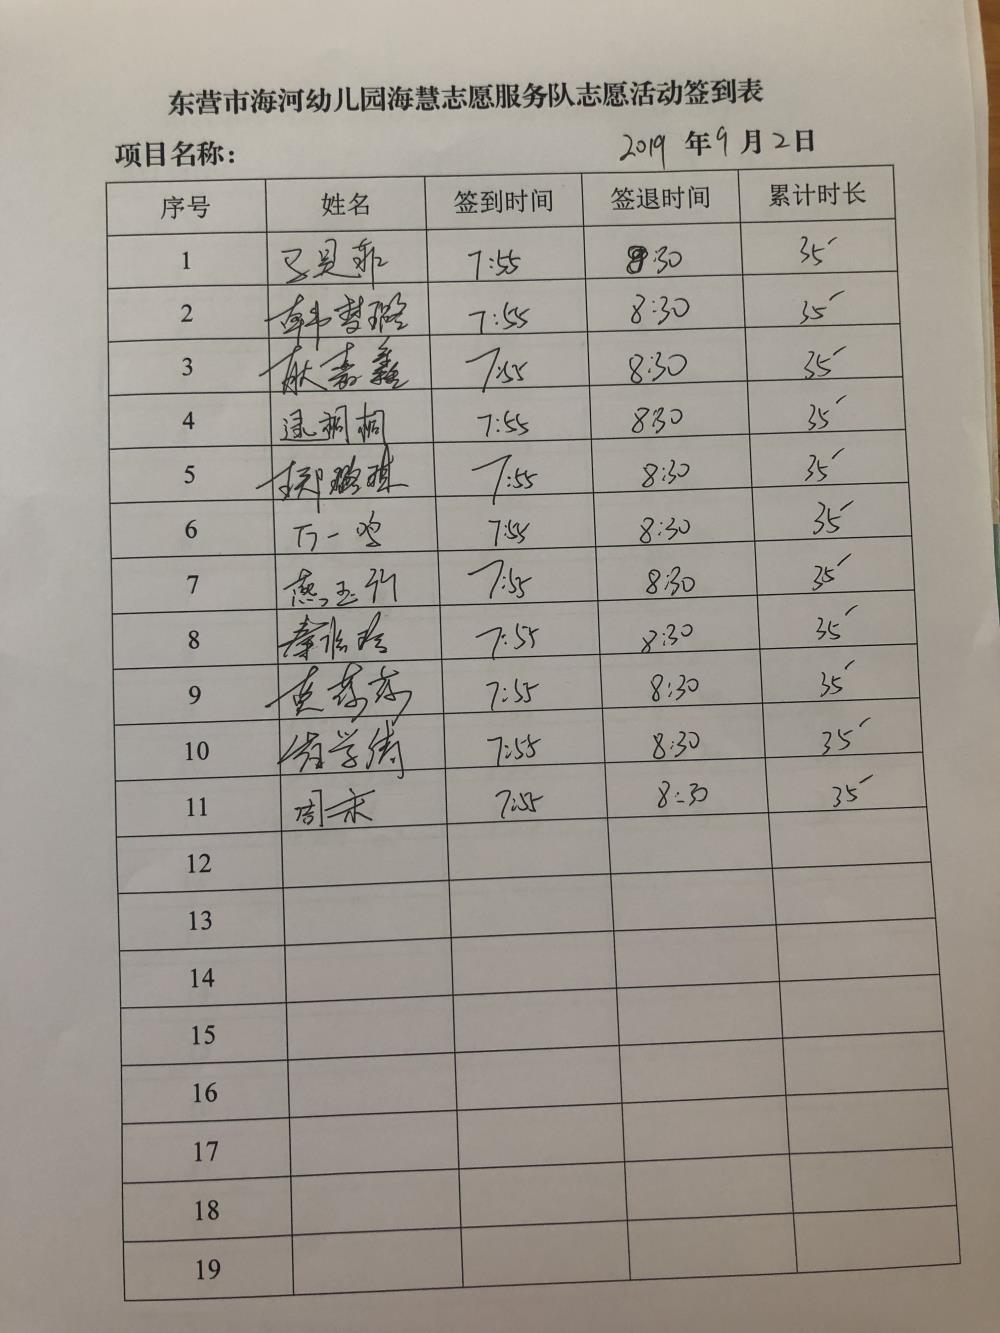 东营市海河幼儿园海慧志愿服务队志愿活动签到表
项目名称： 2019 年 9 月 2 日
序号 姓名 签到时间 签退时间 累计时长
1 7:55 8:30 35′
2 韩梦璐 7:55 8:30 35′
3 7:55 8:30 35′
4 逯桐桐 7:55 830 35′
5 郑璐琪 7:55 8:30 35′
6 丁一鸣 7:55 8:30 35′
7 燕玉 7:55 8:30 35′
8 7:55 8:30 35′
9 7:55 8:30 35′
10 7:55 8:30 35′
11 周 7:55 8:30 35′
12
13
14
15
16
17
18
19